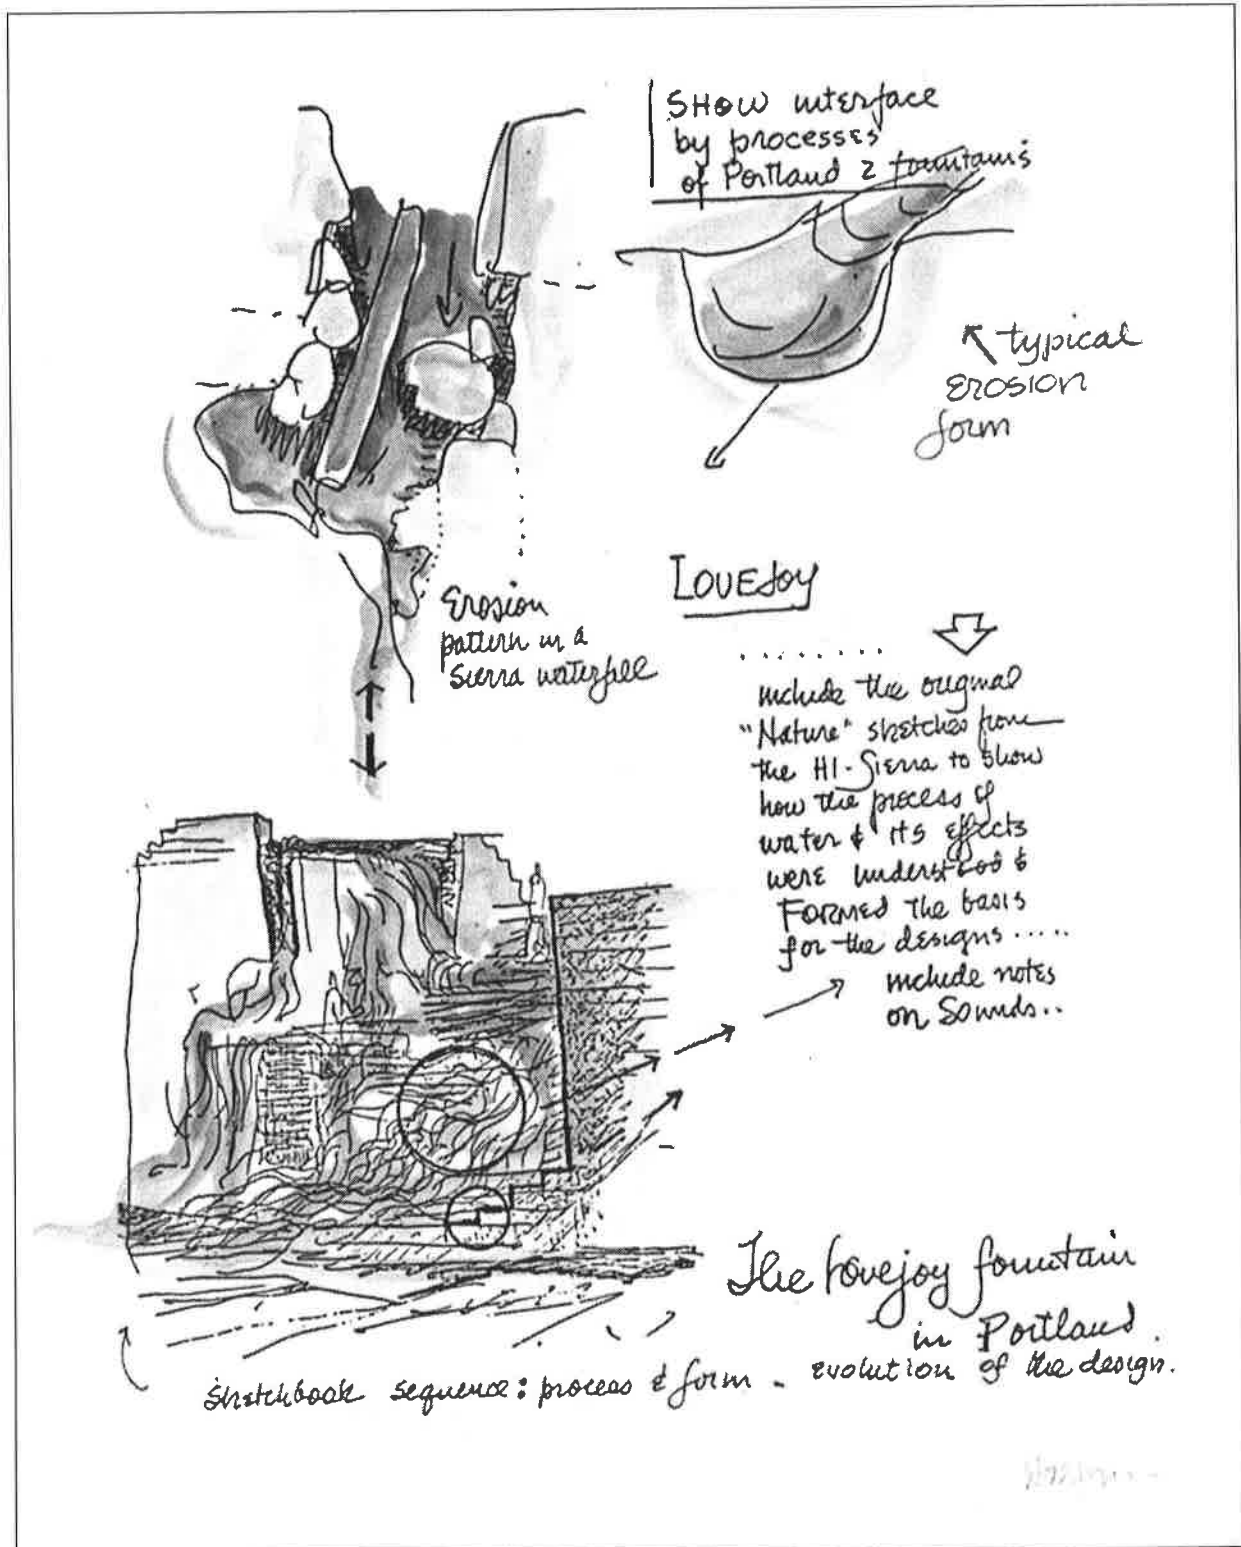 SHOW interface
by processes
of Portland 2 fountains
typical
EROSION
form
Erosion
pattern in a
Sierra waterfall
LOVEJOY
........
include the original
"Nature" sketches from
the HI-Sierra to show
how the process of
water & ITS effects
were understood &
FORMED the basis
for the designs .....
include notes
on Sounds..
The Lovejoy fountain
in Portland.
sketchbook sequence: process & form - evolution of the design.